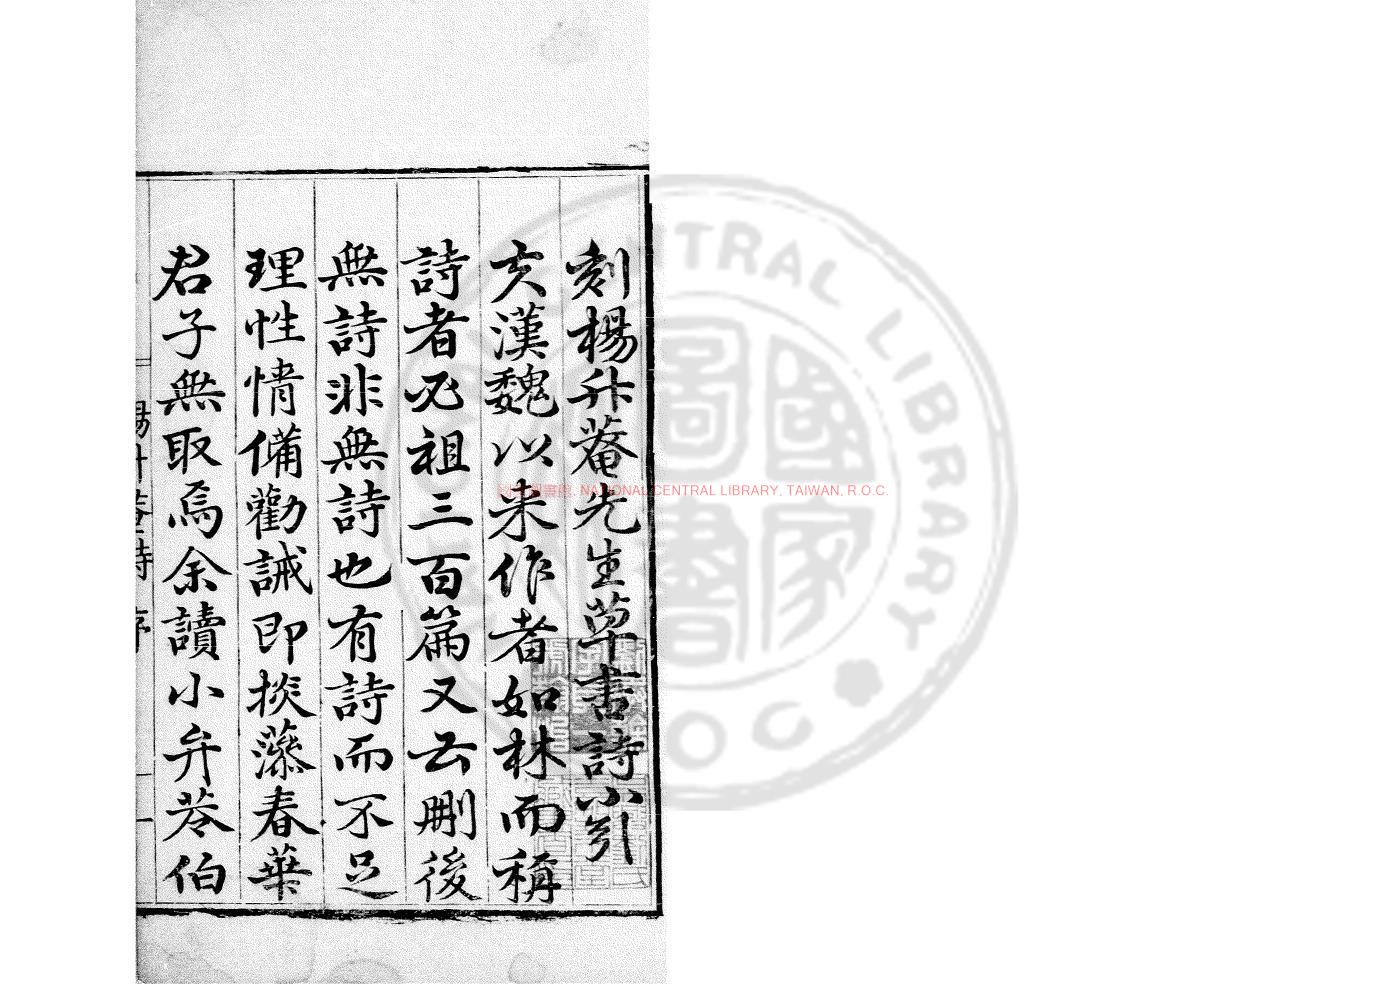 刻楊升菴先生草書詩小引
夫漢魏以来作者如林而稱
詩者必祖三百篇又云刪後
無詩非無詩也有詩而不足
理性情備勸誡即掞藻春華
君子無取焉余讀小弁苓伯
楊升菴詩 序
一
NATIONAL CENTRAL LIBRARY, TAIWAN, R.O.C.
CENTRAL LIBRARY
ROC
國家圖書